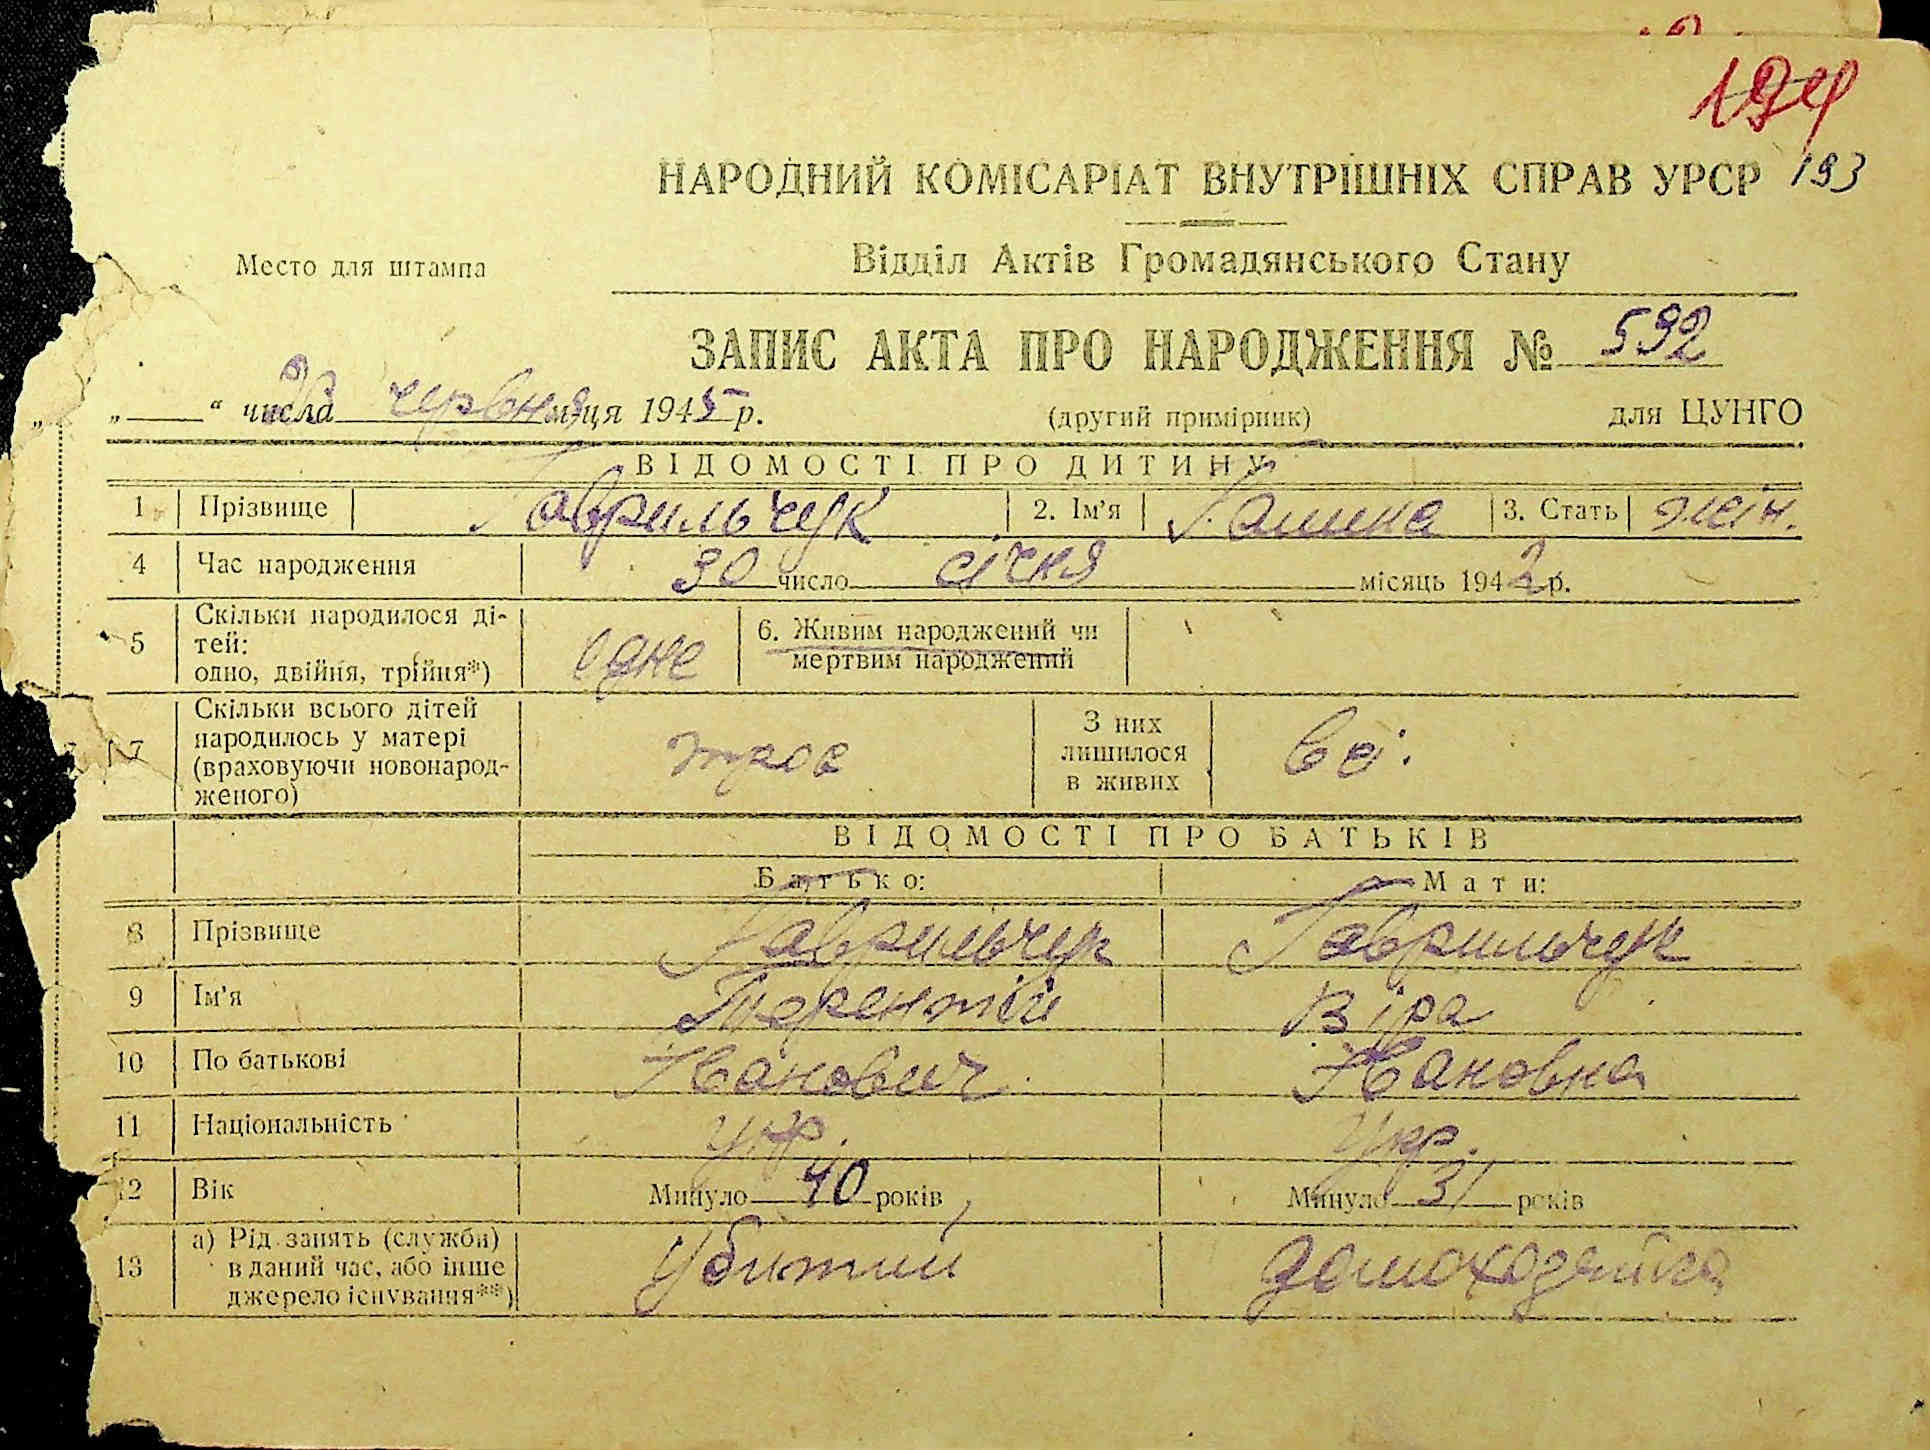 194
НАРОДНИЙ КОМІСАРІАТ ВНУТРІШНІХ СПРАВ УРСР 193
Место для штампа
Відділ Актів Громадянського Стану
ЗАПИС АКТА ПРО НАРОДЖЕННЯ № 592
„ “ числа червня м-ця 1945 р. (другий примірник) для ЦУНГО
ВІДОМОСТІ ПРО ДИТИНУ
1 Прізвище Гаврильчук 2. Ім’я Галина 3. Стать жін.
4 Час народження 30 число січня місяць 1942 р.
5 Скільки народилося ді-
тей:
одно, двійня, трійня*) одне
6. Живим народжений чи
мертвим народжений
7 Скільки всього дітей
народилось у матері
(враховуючи новонарод-
женого) троє
З них
лишилося
в живих всі.
ВІДОМОСТІ ПРО БАТЬКІВ
Батько: Мати:
8 Прізвище Гаврильчук Гаврильчук
9 Ім’я Терентій Віра
10 По батькові Іванович Івановна
11 Національність Укр. Укр.
12 Вік Минуло 40 років Минуло 31 років
13 а) Рід занять (служби)
в даний час, або інше
джерело існування**) Убитий домохозяйка